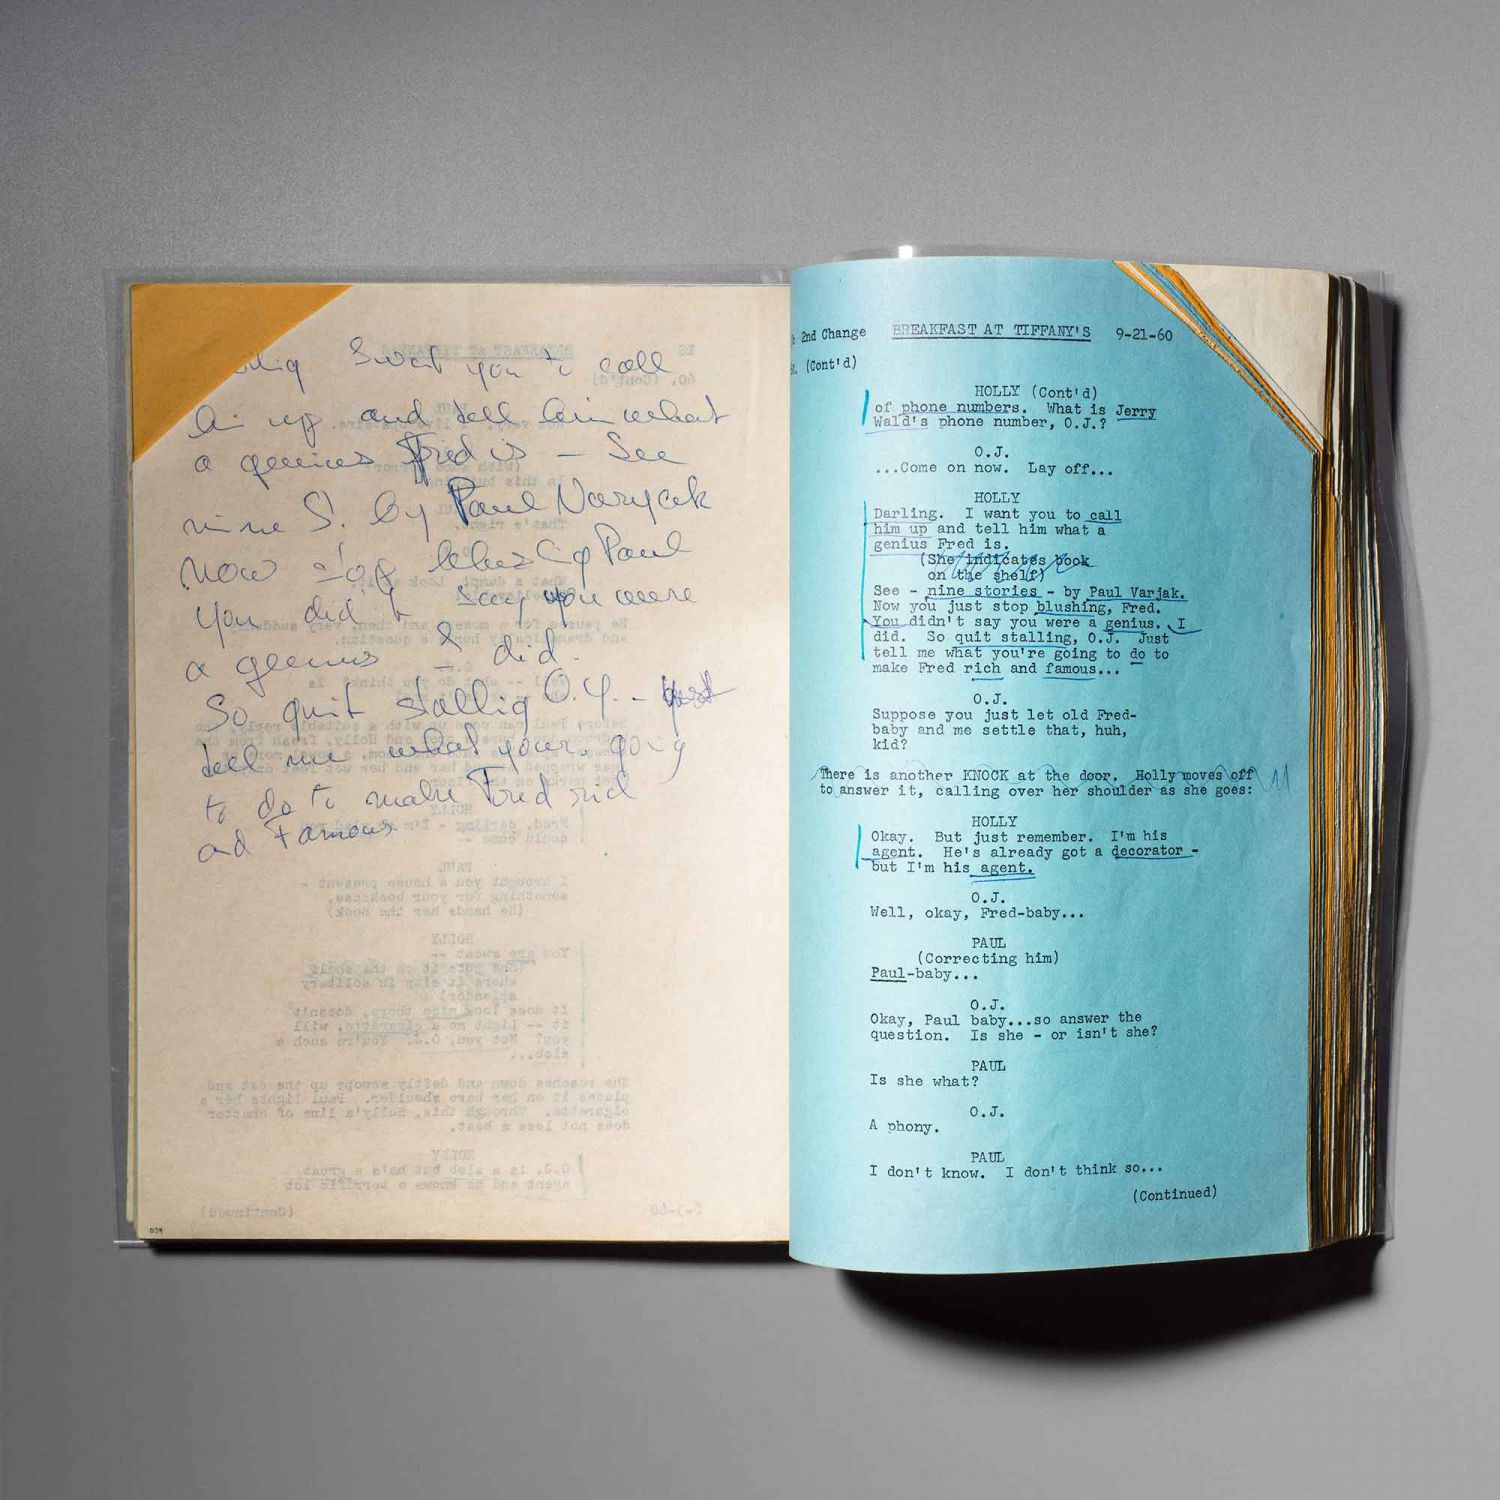 I want you to call
him up and tell him what
a genius Fred is – See
nine S. by Paul Varjak
Now stop blushing Paul
You didn't say you were
a genius I did.
So quit stalling O.J. – just
tell me what your going
to do to make Fred rich
and Famous
039
2nd Change BREAKFAST AT TIFFANY'S 9-21-60
(Cont'd)
HOLLY (Cont'd)
of phone numbers. What is Jerry
Wald's phone number, O.J.?
O.J.
...Come on now. Lay off...
HOLLY
Darling. I want you to call
him up and tell him what a
genius Fred is.
(She indicates book
on the shelf)
See - nine stories - by Paul Varjak.
Now you just stop blushing, Fred.
You didn't say you were a genius. I
did. So quit stalling, O.J. Just
tell me what you're going to do to
make Fred rich and famous...
O.J.
Suppose you just let old Fred-
baby and me settle that, huh,
kid?
There is another KNOCK at the door. Holly moves off
to answer it, calling over her shoulder as she goes:
HOLLY
Okay. But just remember. I'm his
agent. He's already got a decorator -
but I'm his agent.
O.J.
Well, okay, Fred-baby...
PAUL
(Correcting him)
Paul-baby...
O.J.
Okay, Paul baby...so answer the
question. Is she - or isn't she?
PAUL
Is she what?
O.J.
A phony.
PAUL
I don't know. I don't think so...
(Continued)